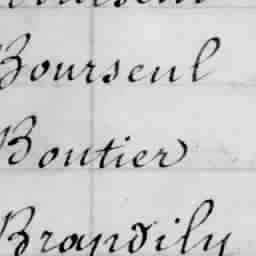 Bourseul
Boutier
Brandily